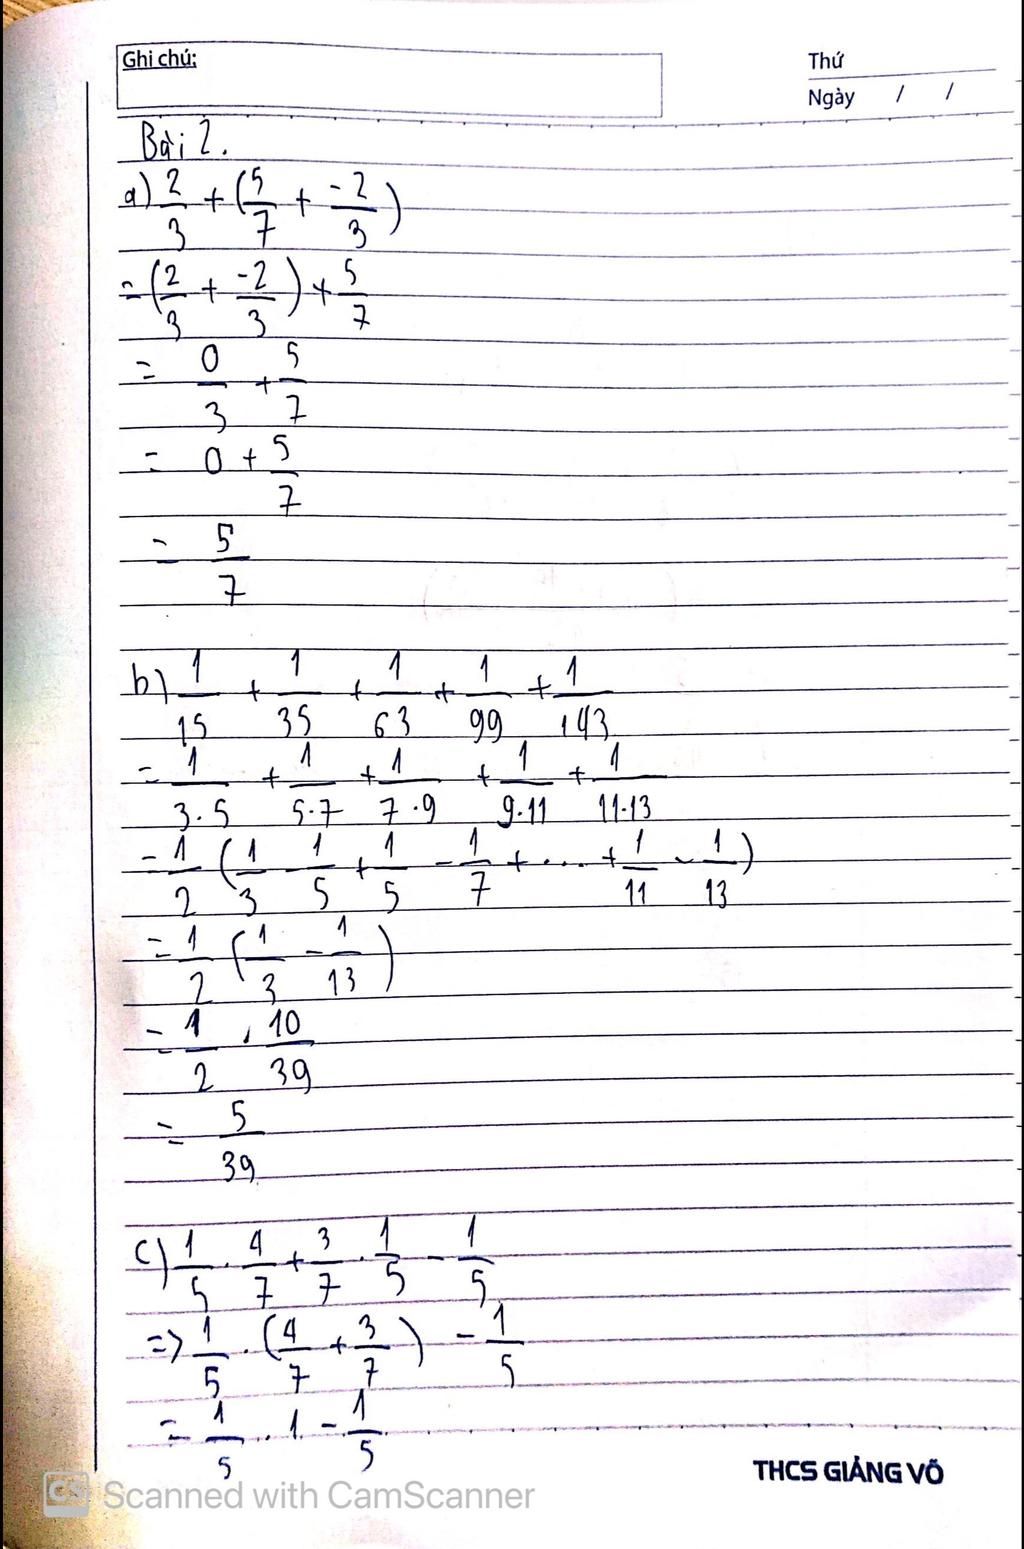 Ghi chú:
Thứ
Ngày / /
Bài 2.
a) 2/3 + (5/7 + -2/3)
= (2/3 + -2/3) + 5/7
= 0/3 + 5/7
= 0 + 5/7
= 5/7
b) 1/15 + 1/35 + 1/63 + 1/99 + 1/143
= 1/3·5 + 1/5·7 + 1/7·9 + 1/9·11 + 1/11·13
= 1/2 (1/3 - 1/5 + 1/5 - 1/7 + ... + 1/11 - 1/13)
= 1/2 (1/3 - 1/13)
= 1/2 · 10/39
= 5/39
c) 1/5 · 4/7 + 3/7 · 1/5 - 1/5
=> 1/5 · (4/7 + 3/7) - 1/5
= 1/5 · 1 - 1/5
THCS GIẢNG VÕ
CS Scanned with CamScanner